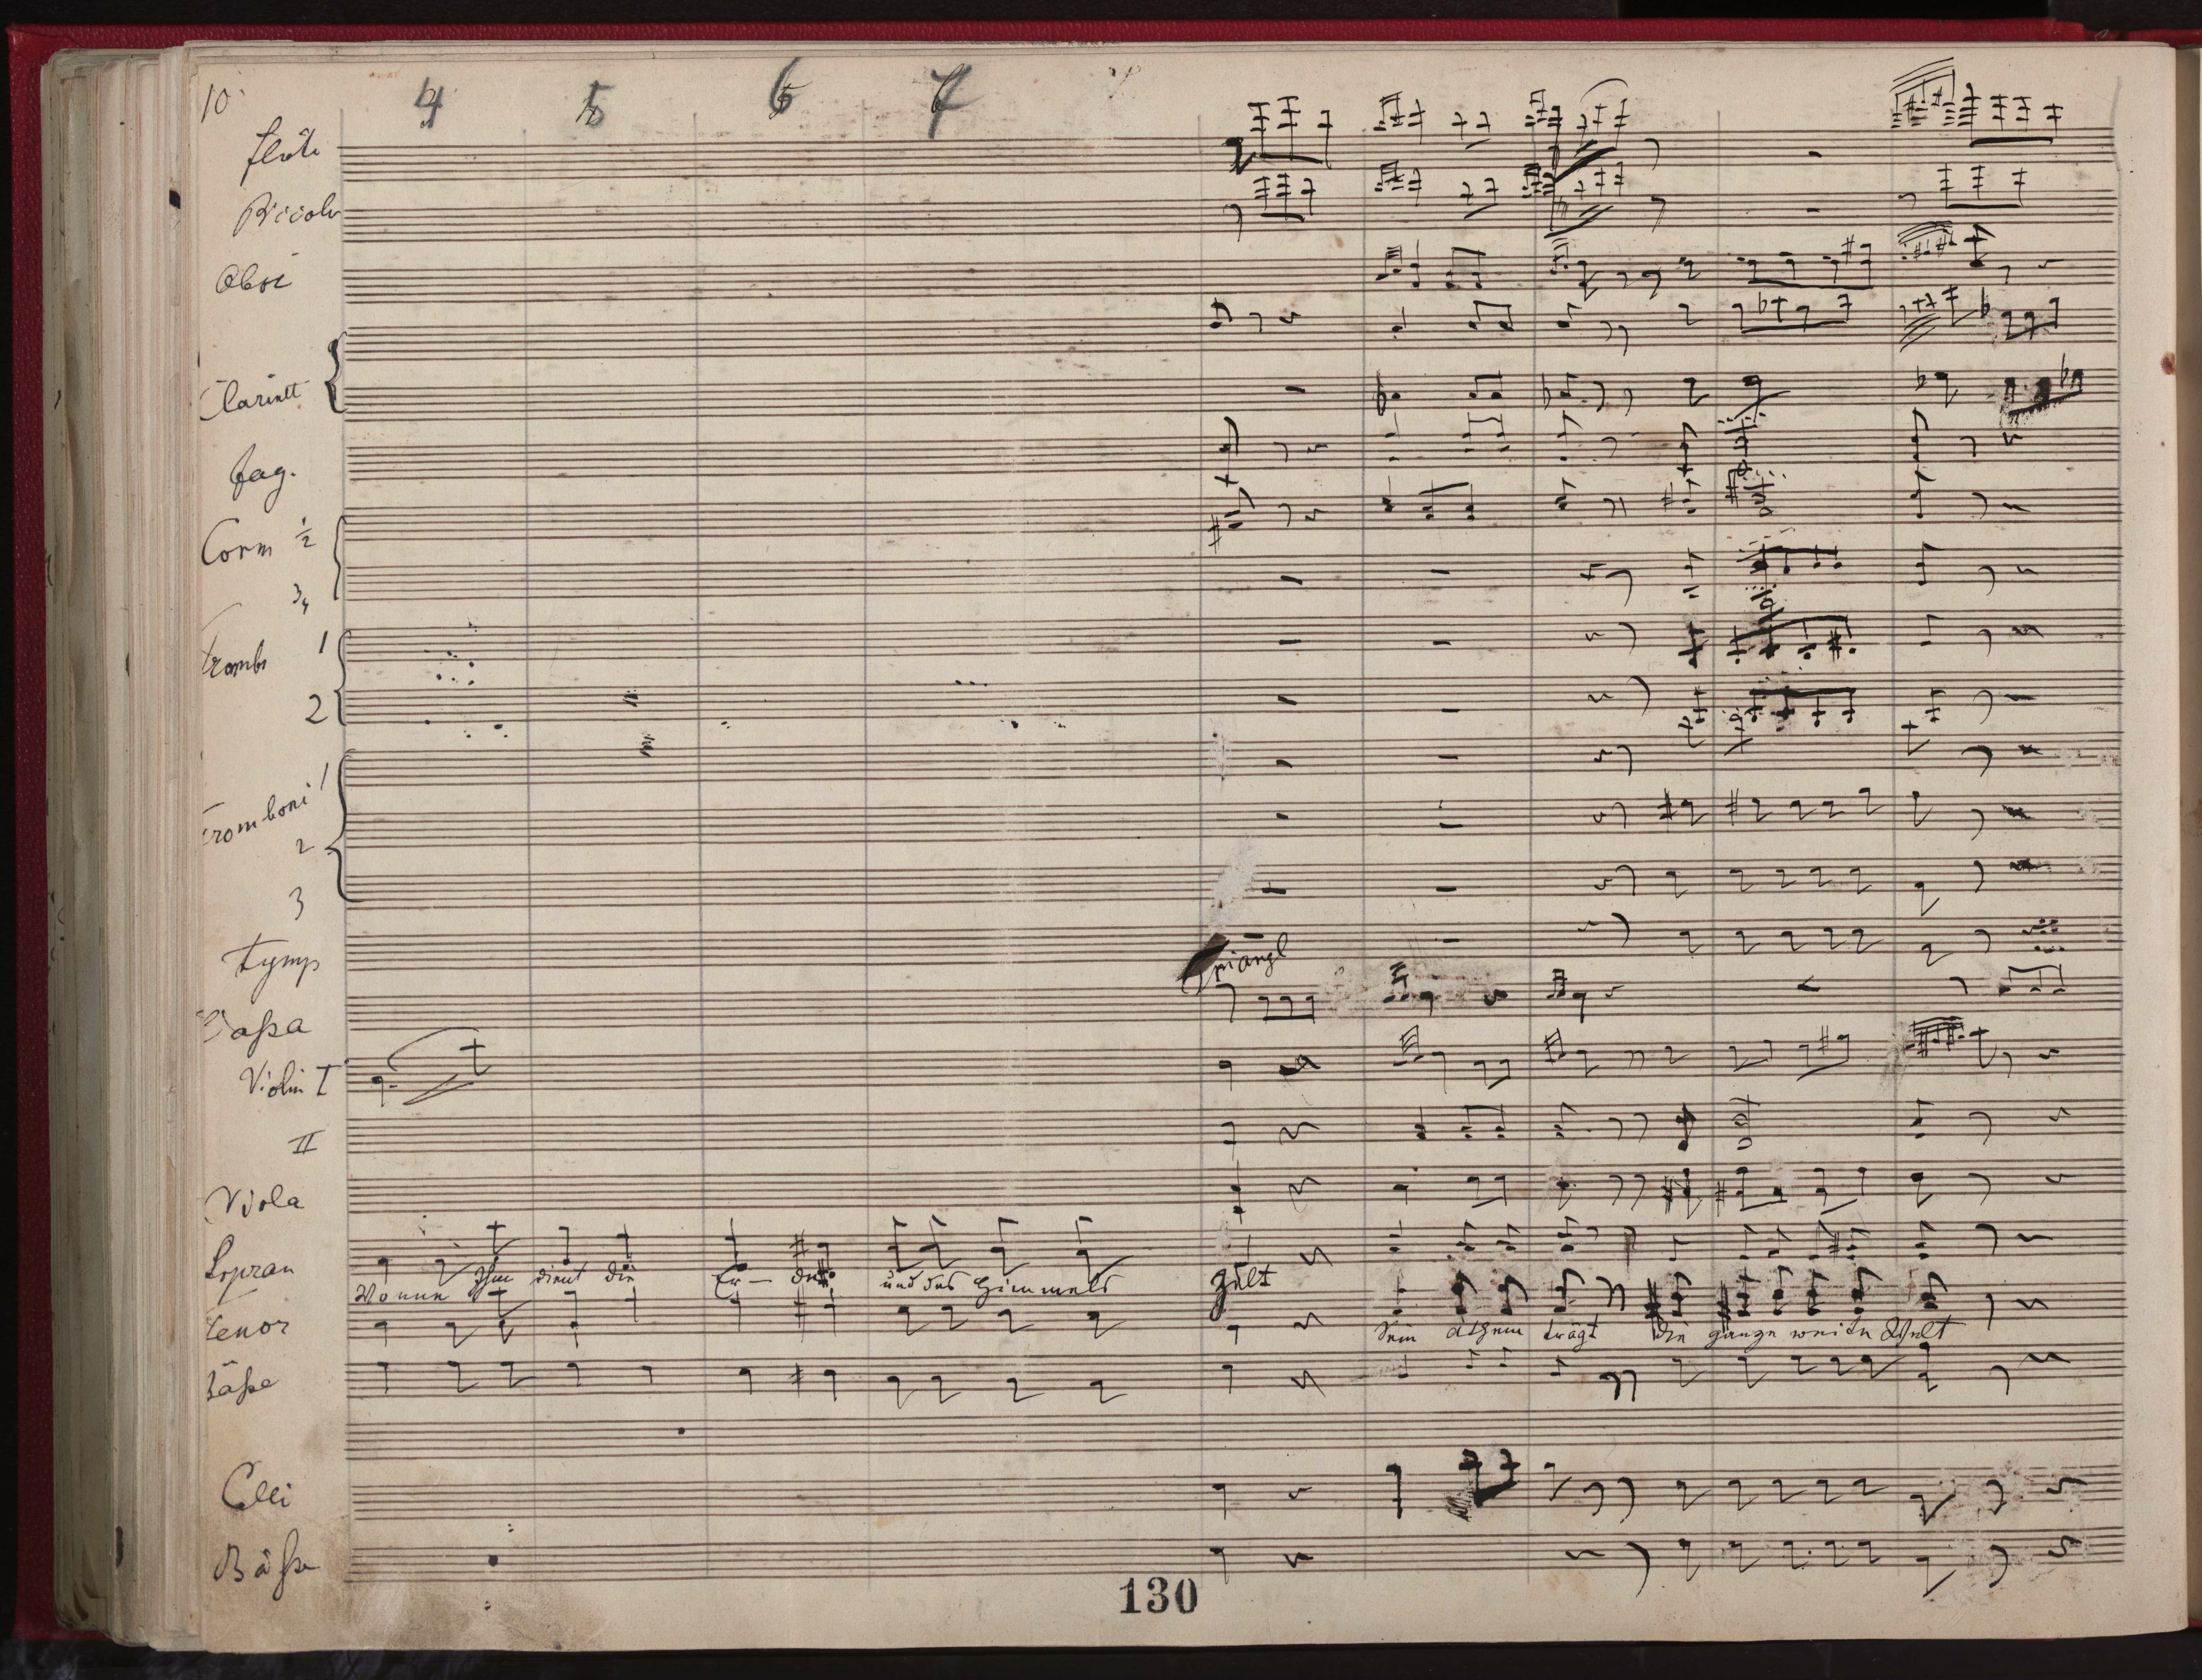 10
4 5 6 7
Flöte
Piccolo
Oboi
Clarinett
Fag.
Corni 1/2
3/4
Trombe 1
2
Tromboni 1
2
3
Tymp
Triangl
Caßa
Violin I
II
Viola
Sopran
Wonne Ihm dient die Er - de und des Himmels Zelt
Tenor
Sein Athem trägt die ganze weite Welt
Bäße
Celli
Bäße
130